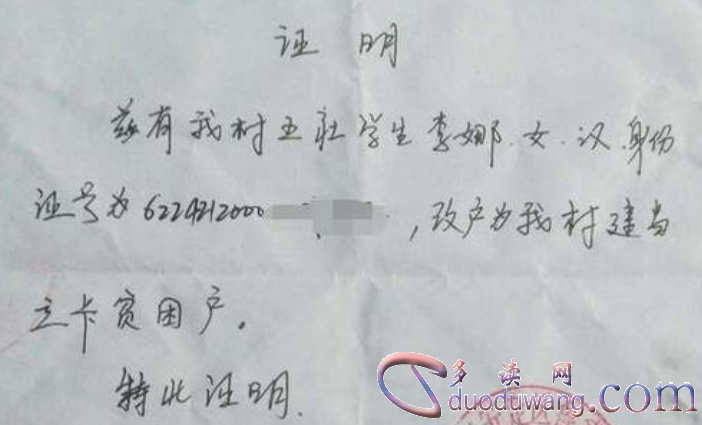 证 明
兹有我村五社学生李娜.女.汉.身份
证号为6224212000 ,改户为我村建当
立卡贫困户.
特此证明.
多读网
duoduwang.com